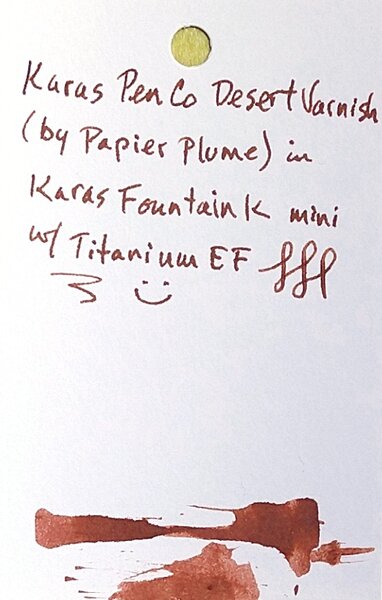 Karas Pen Co Desert Varnish
(by Papier Plume) in
Karas Fountain K mini
w/ Titanium EF